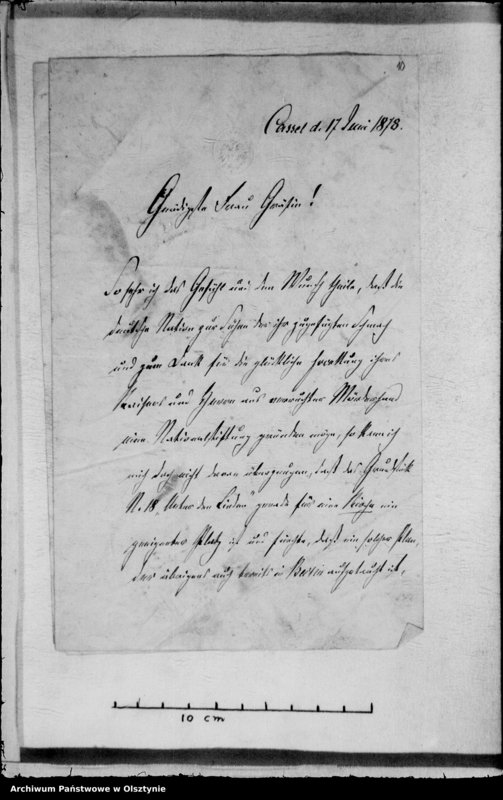 10
Cassel d. 17 Juni 1878.
Gnädigste Frau Gräfin!
So sehr ich das Gefühl und den Wunsch theile, daß die
deutsche Nation zur Sühne der ihr zugefügten Schmach
und zum Dank für die glückliche Errettung ihres
Kaisers und Herrn aus verruchter Mörderhand
eine Nationalstiftung gründen möge, so kann ich
mich doch nicht davon überzeugen, daß das Grundstück
N. 18 „Unter den Linden" gerade für eine Kirche ein
geeigneter Platz ist und fürchte, daß ein solcher Plan,
der übrigens auch bereits in Berlin aufgetaucht ist,
10 cm
Archiwum Państwowe w Olsztynie